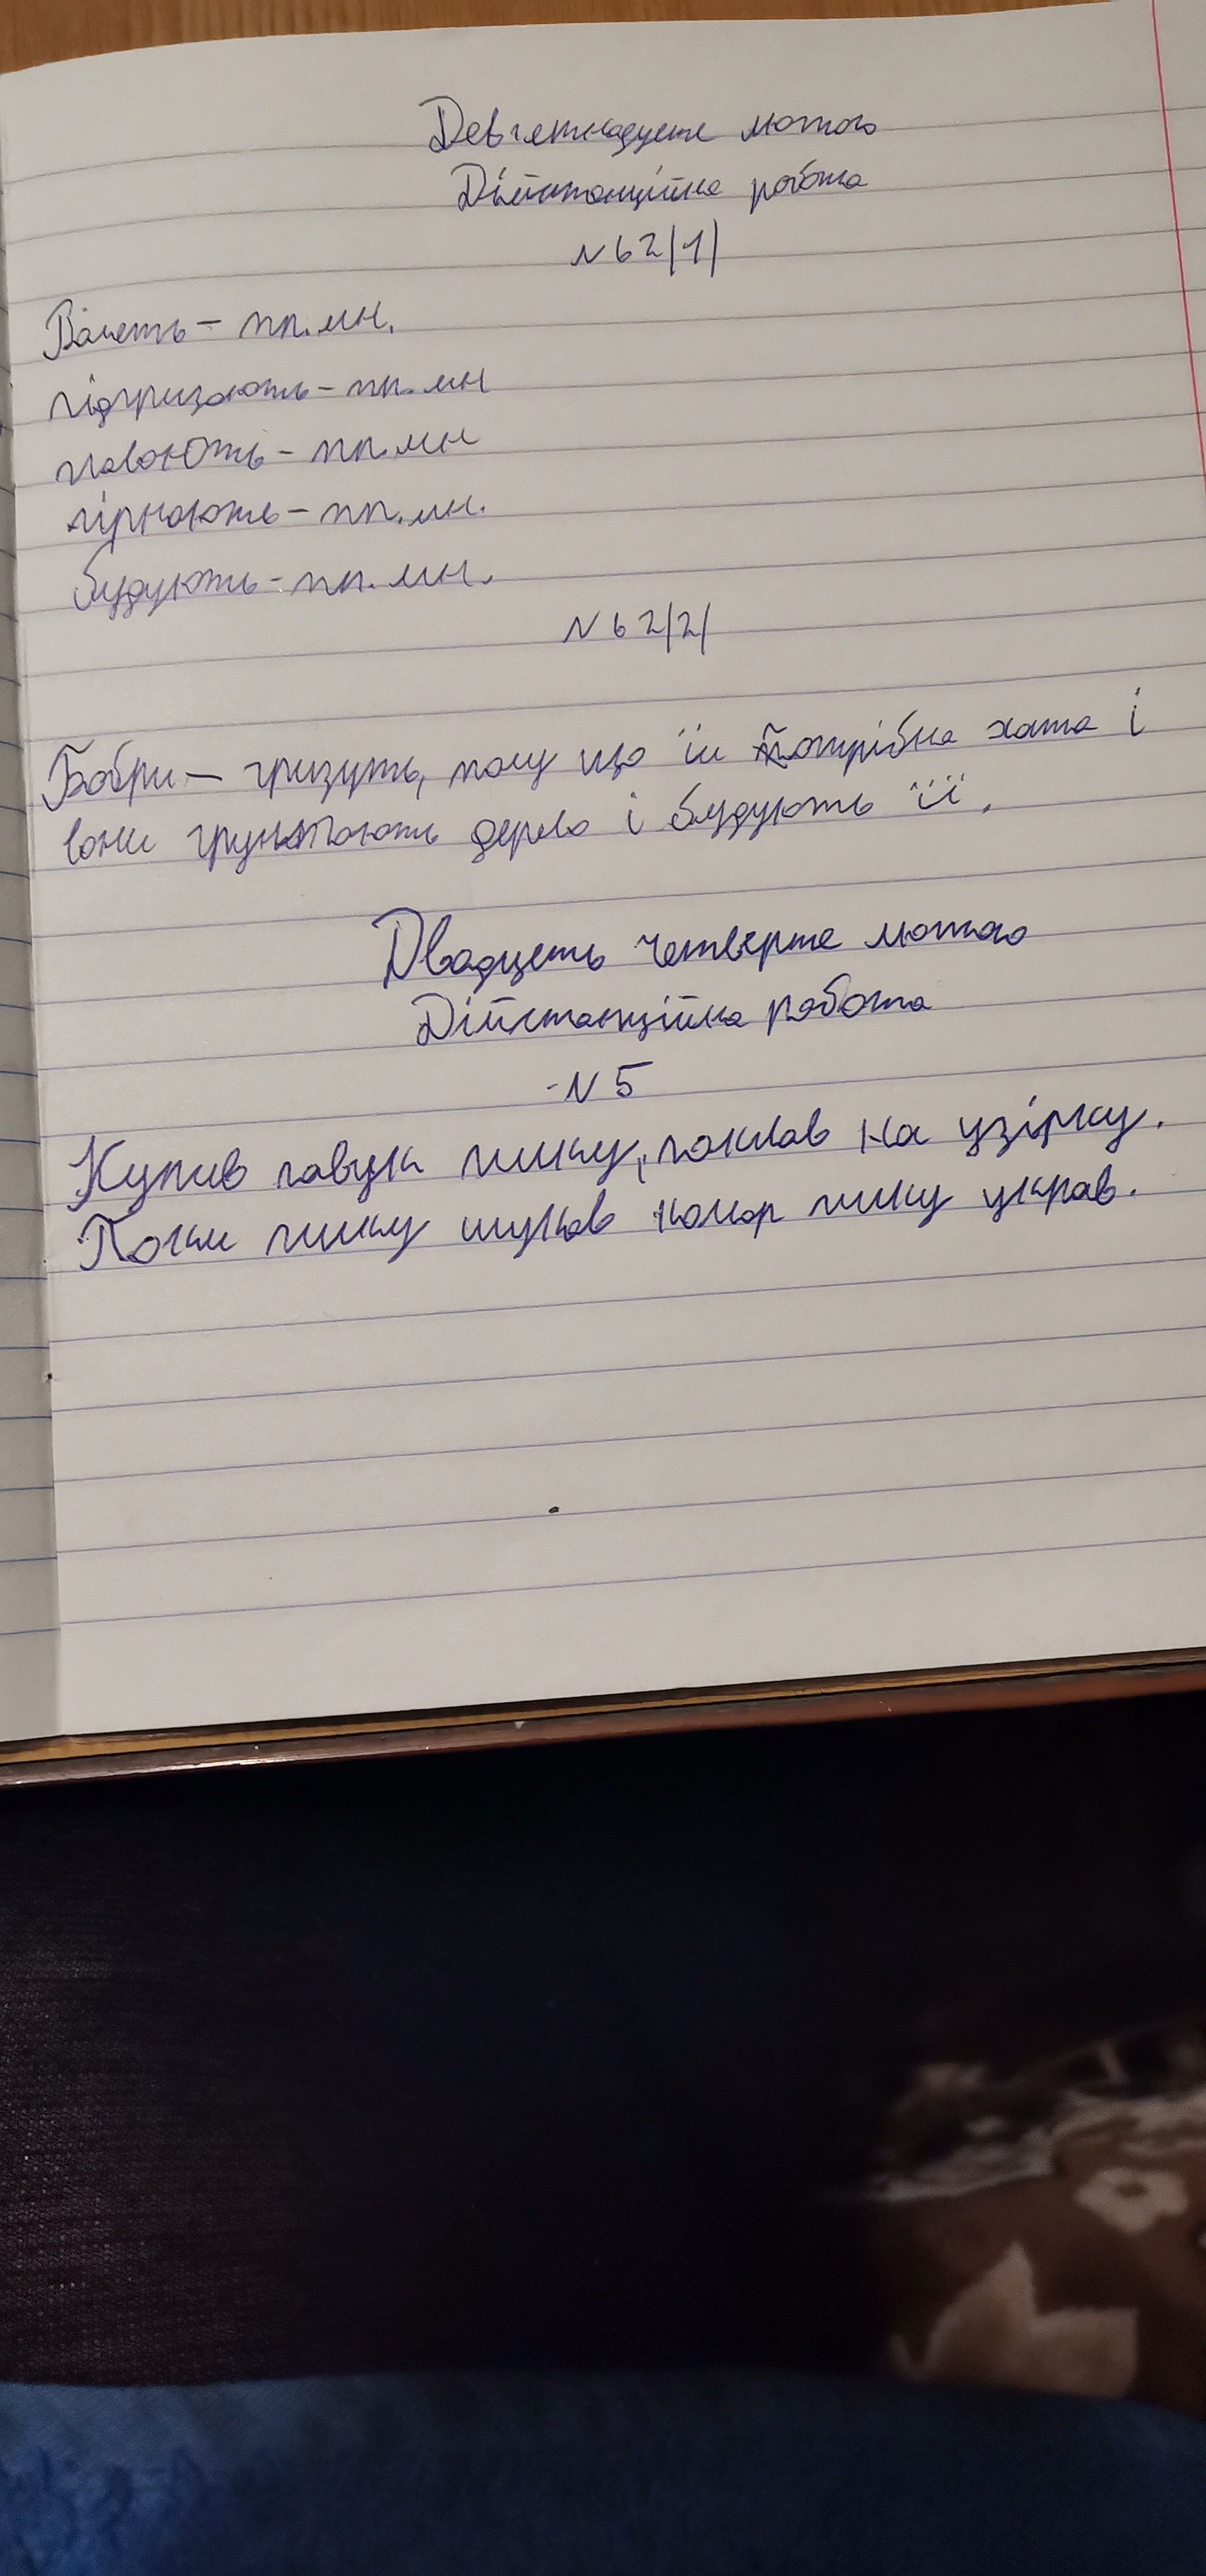 Дев'ятнадцяте лютого
Дійстанційна робота
№ 62|1|
Валять – тп. мн.
підгризають – тп. мн
плавають – тп. мн
пірнають – тп. мн.
будують – тп. мн.
№ 62|2|
Бобри – гризуть, тому що їм потрібна хата і
вони дерево і будують її.
Двадцять четверте лютого
Дійстанційна робота
№ 5
Купив павук пилку, поклав на узірку.
Поки пилку шукав комар пилку украв.